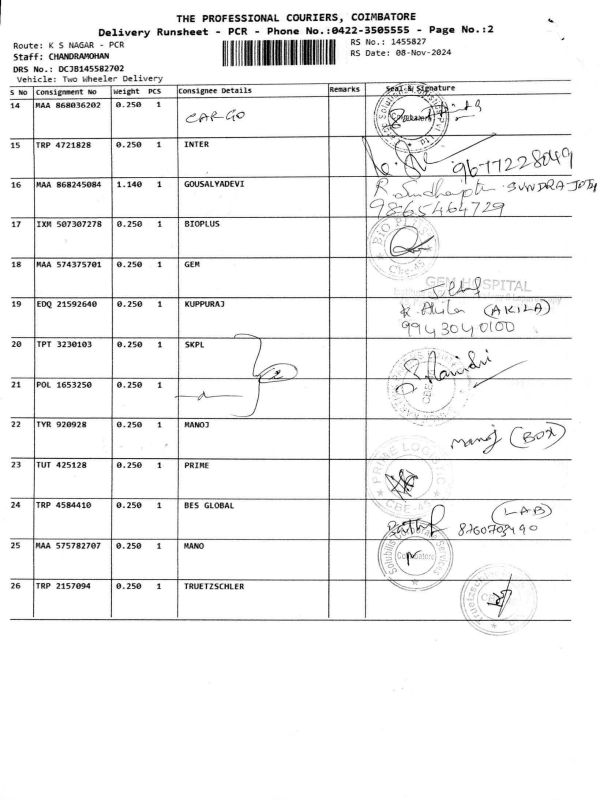 THE PROFESSIONAL COURIERS, COIMBATORE
Delivery Runsheet - PCR - Phone No.:0422-3505555 - Page No.:2
Route: K S NAGAR - PCR
RS No.: 1455827
Staff: CHANDRAMOHAN
RS Date: 08-Nov-2024
DRS No.: DCJB145582702
Vehicle: Two Wheeler Delivery
S No Consignment No Weight PCS Consignee Details Remarks Seal & Signature
14 MAA 868036202 0.250 1 CARGO
Coimbatore
15 TRP 4721828 0.250 1 INTER
9677228049
16 MAA 868245084 1.140 1 GOUSALYADEVI
9865464729
17 IXM 507307278 0.250 1 BIOPLUS
BIO PLUS
CBE-45
18 MAA 574375701 0.250 1 GEM
GEM HOSPITAL
19 EDQ 21592640 0.250 1 KUPPURAJ
(AKILA)
9943040100
20 TPT 3230103 0.250 1 SKPL
21 POL 1653250 0.250 1
22 TYR 920928 0.250 1 MANOJ
Manoj (BOX)
23 TUT 425128 0.250 1 PRIME
PRIME LOGISTIC
CBE-45
24 TRP 4584410 0.250 1 BES GLOBAL
(LAB)
8760703490
25 MAA 575782707 0.250 1 MANO
Coimbatore
26 TRP 2157094 0.250 1 TRUETZSCHLER